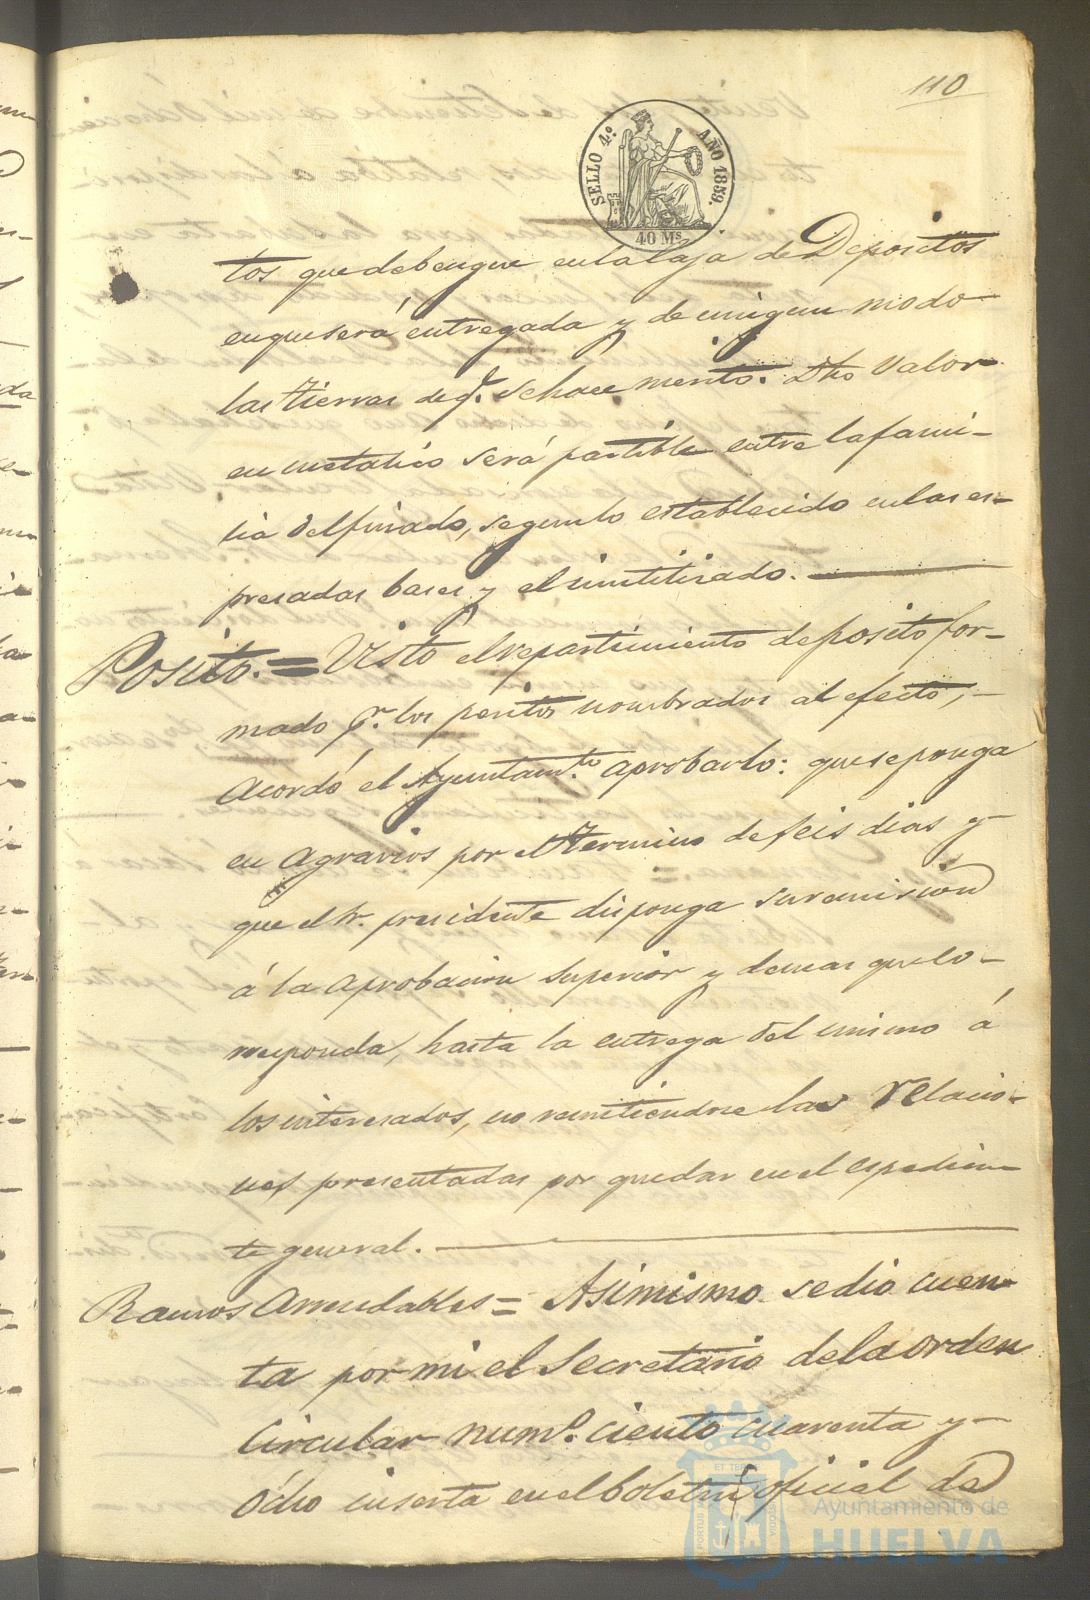 110
SELLO 4.º AÑO 1859.
40 Ms
tos que debengue en la Caja de Depositos
en que será entregada y de ningun modo
las tierras de q.e se hace merito. Dho valor
en metalico será partible entre la fami-
lia del finado, segun lo establecido en las es-
presadas bases y el inutilizado.
Posito.= Visto el repartimiento de posito for-
mado p.r los peritos nombrados al efecto,
acordó el Ayuntam.to aprobarlo: que se ponga
en agravios por el termino de seis dias y
que el Sr. presidente disponga su remision
á la aprobacion Superior y demas que co-
rresponda, hasta la entrega del mismo á
los interesados, no remitiendose las relacio-
nes presentadas por quedar en el espedien-
te general.
Ramos Arrendables = Asimismo se dio cuen-
ta por mi el Secretario de la orden
Circular num.o ciento cuarenta y
Ocho inserta en el boletin oficial de
Ayuntamiento de
HUELVA